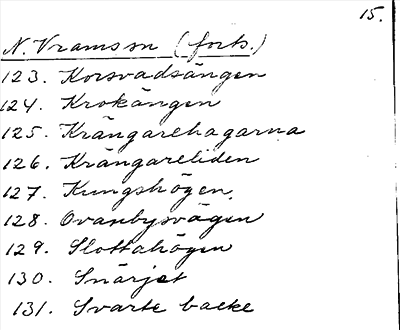 15.
N. Vramsm (forts.)
123. Korsvadsängen
124. Krokängen
125. Krängarehagarna
126. Krängareliden
127. Kungshögen.
128. Ovanbysvägen
129. Slottahögen
130. Snärjet
131. Svarte backe